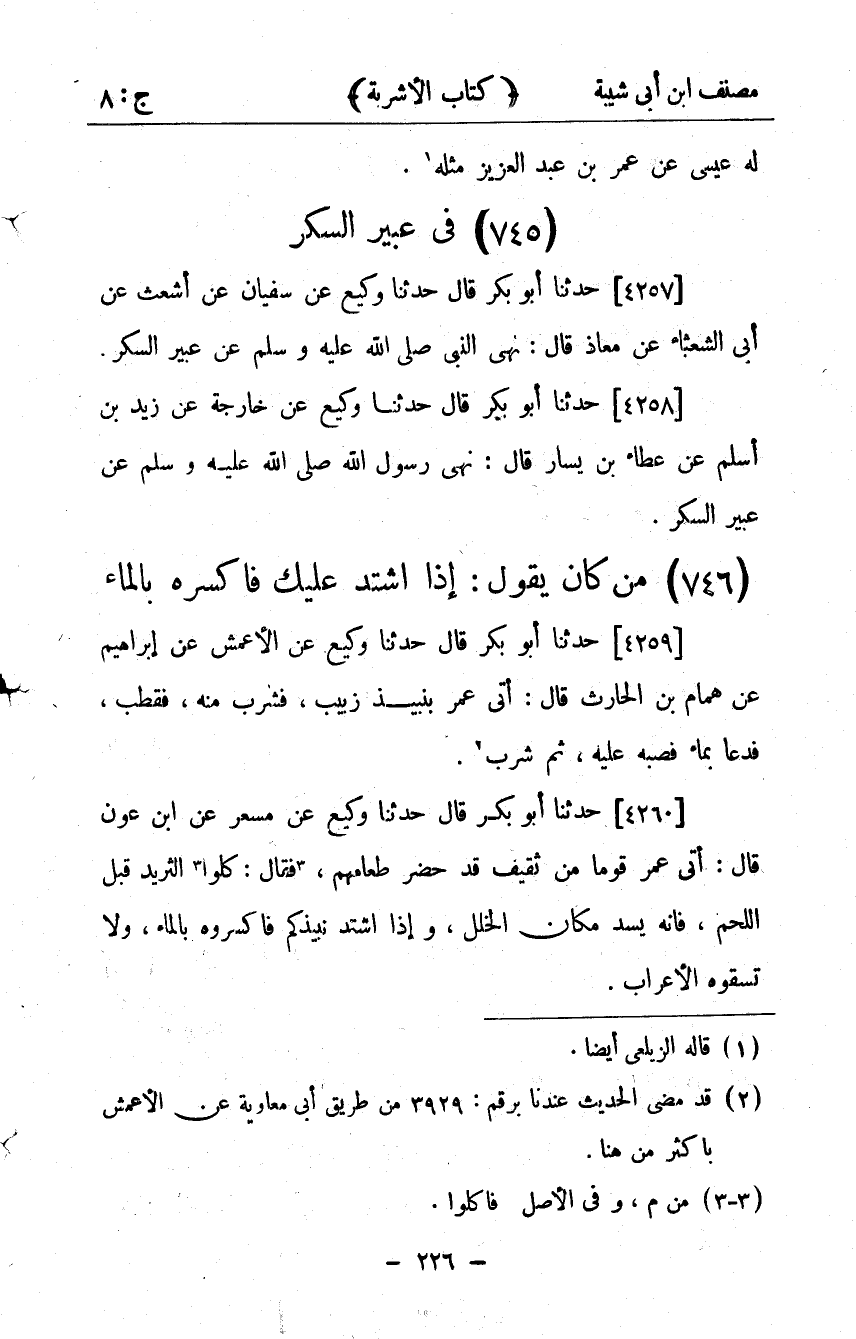 مصنف ابن أبى شيبة ﴿ كتاب الأشربة ﴾ ج : ٨
له عيسى عن عمر بن عبد العزيز مثله١ .
(٧٤٥) فى عبير السكر
[٤٢٥٧] حدثنا أبو بكر قال حدثنا وكيع عن سفيان عن أشعث عن
أبى الشعثاء عن معاذ قال : نهى النبى صلى الله عليه و سلم عن عبير السكر .
[٤٢٥٨] حدثنا أبو بكر قال حدثنا وكيع عن خارجة عن زيد بن
أسلم عن عطاء بن يسار قال : نهى رسول الله صلى الله عليه و سلم عن
عبير السكر .
(٧٤٦) من كان يقول : إذا اشتد عليك فاكسره بالماء
[٤٢٥٩] حدثنا أبو بكر قال حدثنا وكيع عن الأعمش عن إبراهيم
عن همام بن الحارث قال : أتى عمر بنبيذ زبيب ، فشرب منه ، فقطب ،
فدعا بماء فصبه عليه ، ثم شرب٢ .
[٤٢٦٠] حدثنا أبو بكر قال حدثنا وكيع عن مسعر عن ابن عون
قال : أتى عمر قوما من ثقيف قد حضر طعامهم ، ٣فقال : كلوا٣ الثريد قبل
اللحم ، فانه يسد مكان الخلل ، و إذا اشتد نبيذكم فاكسروه بالماء ، ولا
تسقوه الأعراب .
(١) قاله الزيلعى أيضا .
(٢) قد مضى الحديث عندنا برقم : ٣٩٢٩ من طريق أبى معاوية عن الأعمش
باكثر من هنا .
(٣-٣) من م ، و فى الأصل فاكلوا .
- ٢٢٦ -